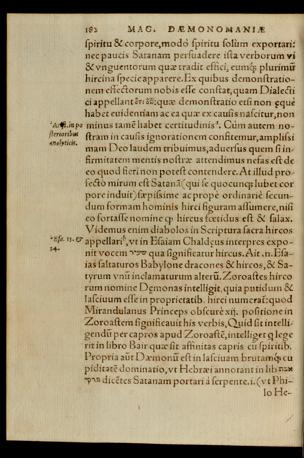 182 MAG. DÆMONOMANIÆ
spiritu & corpore, modò spiritu solùm exportari:
nec paucis Satanam persuadere ista verborum vi
& vnguentorum quæ tradit effici, eumq́; plurimũ
hircina specie apparere. Ex quibus demonstratio-
nem effectorum nobis esse constat, quam Dialecti
ci appellant ὅτι ἐϛὶ: quæ demonstratio etsi non æquè
habet euidentiam ac ea quæ ex causis nascitur, non
ᵃ Arist. in po minus tamē habet certitudinisᵃ. Cùm autem no-
sterioribus stram in causis ignorationem confitemur, amplissi
analyticis. mam Deo laudem tribuimus, aduersus quem si in-
firmitatem mentis nostræ attendimus nefas est de
eo quod fieri non potest contendere. At illud pro-
fectò mirum est Satanã (qui se quocunq; lubet cor
pore induit) sæpissimè ac propè ordinariè secun-
dum formam hominis hirci figuram assumere, nisi
eo fortasse nomine q̀ hircus fœtidus est & salax.
Videmus enim diabolos in Scriptura sacra hircos
ᵇ Esa. 13. & appellariᵇ, vt in Esaiam Chaldæus interpres expo-
34. nit vocem שעיר qua significatur hircus. Ait .n. Esa-
ias saltaturos Babylone dracones & hircos, & Sa-
tyrum vnũ inclamaturum alterũ. Zoroastes hirco
rum nomine Dęmonas intelligit, quia putidum &
lasciuum esse in proprietatib. hirci numerãt: quod
Mirandulanus Princeps obscurè xij. positione in
Zoroastem significauit his verbis, Quid sit intelli-
gendũ per capros apud Zoroastē, intelliget q lege
rit in libro Bair quæ sit affinitas capris cũ spiritib.
Propria aũt Dæmonũ est in lasciuam brutamq́; cu
piditatē dominatio, vt Hebræi annorant in lib אבות
פרקי dicētes Satanam portari à serpente. i. (vt Phi-
lo He-